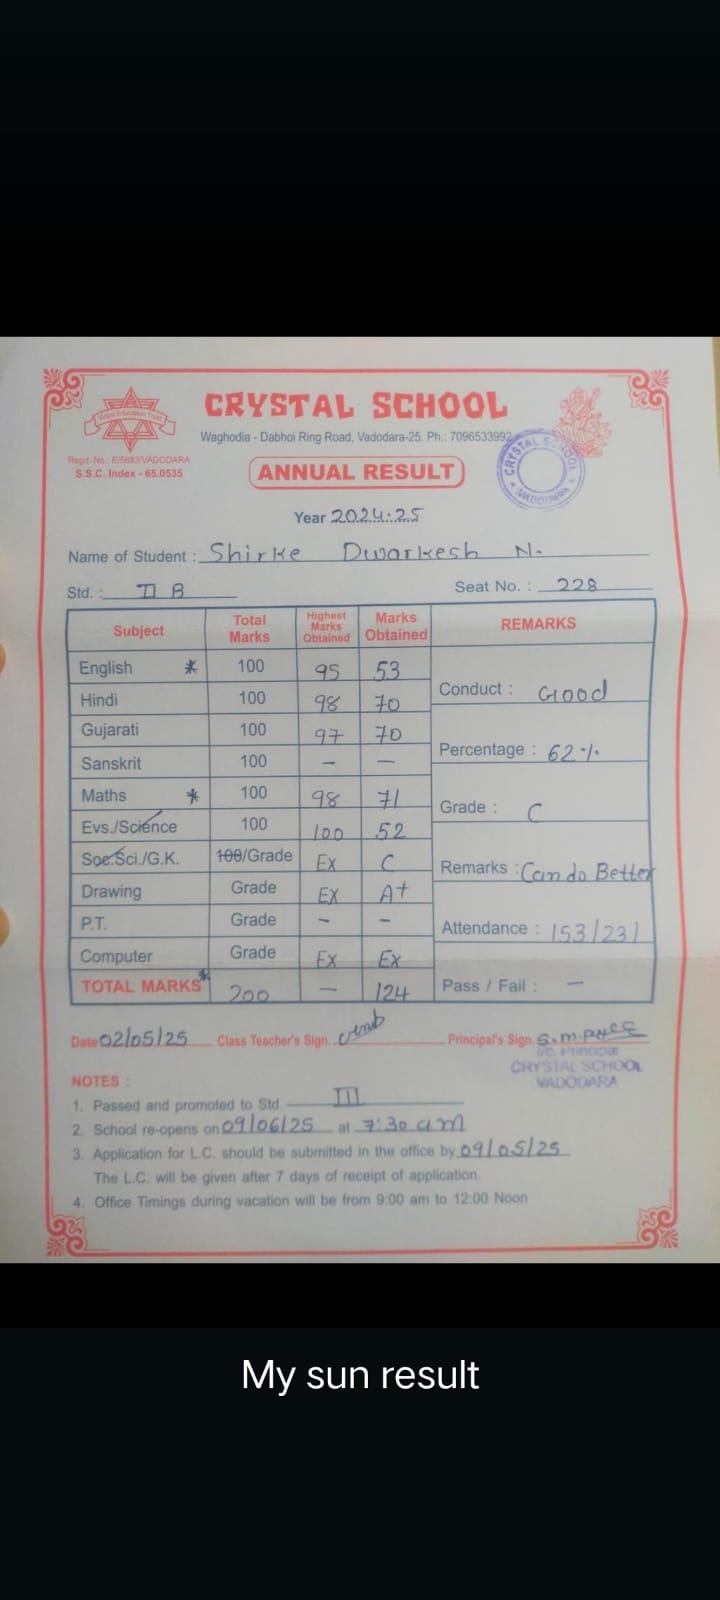 Shiya Education Trust
CRYSTAL SCHOOL
Waghodia - Dabhoi Ring Road, Vadodara-25. Ph.: 7096533992
Regd. No.. E/5683/VADODARA
S.S.C. Index - 65.0535
ANNUAL RESULT
CRYSTAL SCHOOL
VADODARA
Year 2024-25
Name of Student : Shirke Dwarkesh N.
Std. : II B Seat No. : 228
Subject Total Marks Highest Marks Obtained Marks Obtained REMARKS
English * 100 95 53
Hindi 100 98 70 Conduct : Good
Gujarati 100 97 70
Sanskrit 100 - - Percentage : 62 %
Maths * 100 98 71
Evs./Science 100 100 52 Grade : C
Soc.Sci./G.K. 100/Grade Ex C
Drawing Grade Ex A+ Remarks : Can do Better
P.T. Grade - -
Computer Grade Ex Ex Attendance : 153/231
TOTAL MARKS * 200 - 124 Pass / Fail : -
Date 02/05/25 Class Teacher's Sign. Principal's Sign.
I/c. Principal
CRYSTAL SCHOOL
VADODARA
NOTES :
1. Passed and promoted to Std. III
2. School re-opens on 09/06/25 at 7:30 am
3. Application for L.C. should be submitted in the office by 09/05/25
The L.C. will be given after 7 days of receipt of application.
4. Office Timings during vacation will be from 9:00 am to 12:00 Noon
My sun result